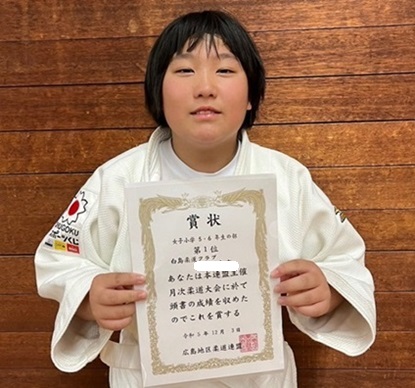 賞状
女子小学5・6年生の部
第1位
白島柔道クラブ
あなたは本連盟主催
月次柔道大会に於て
頭書の成績を収めた
のでこれを賞する
令和5年12月3日
広島地区柔道連盟
GOKU
スポーツくじ